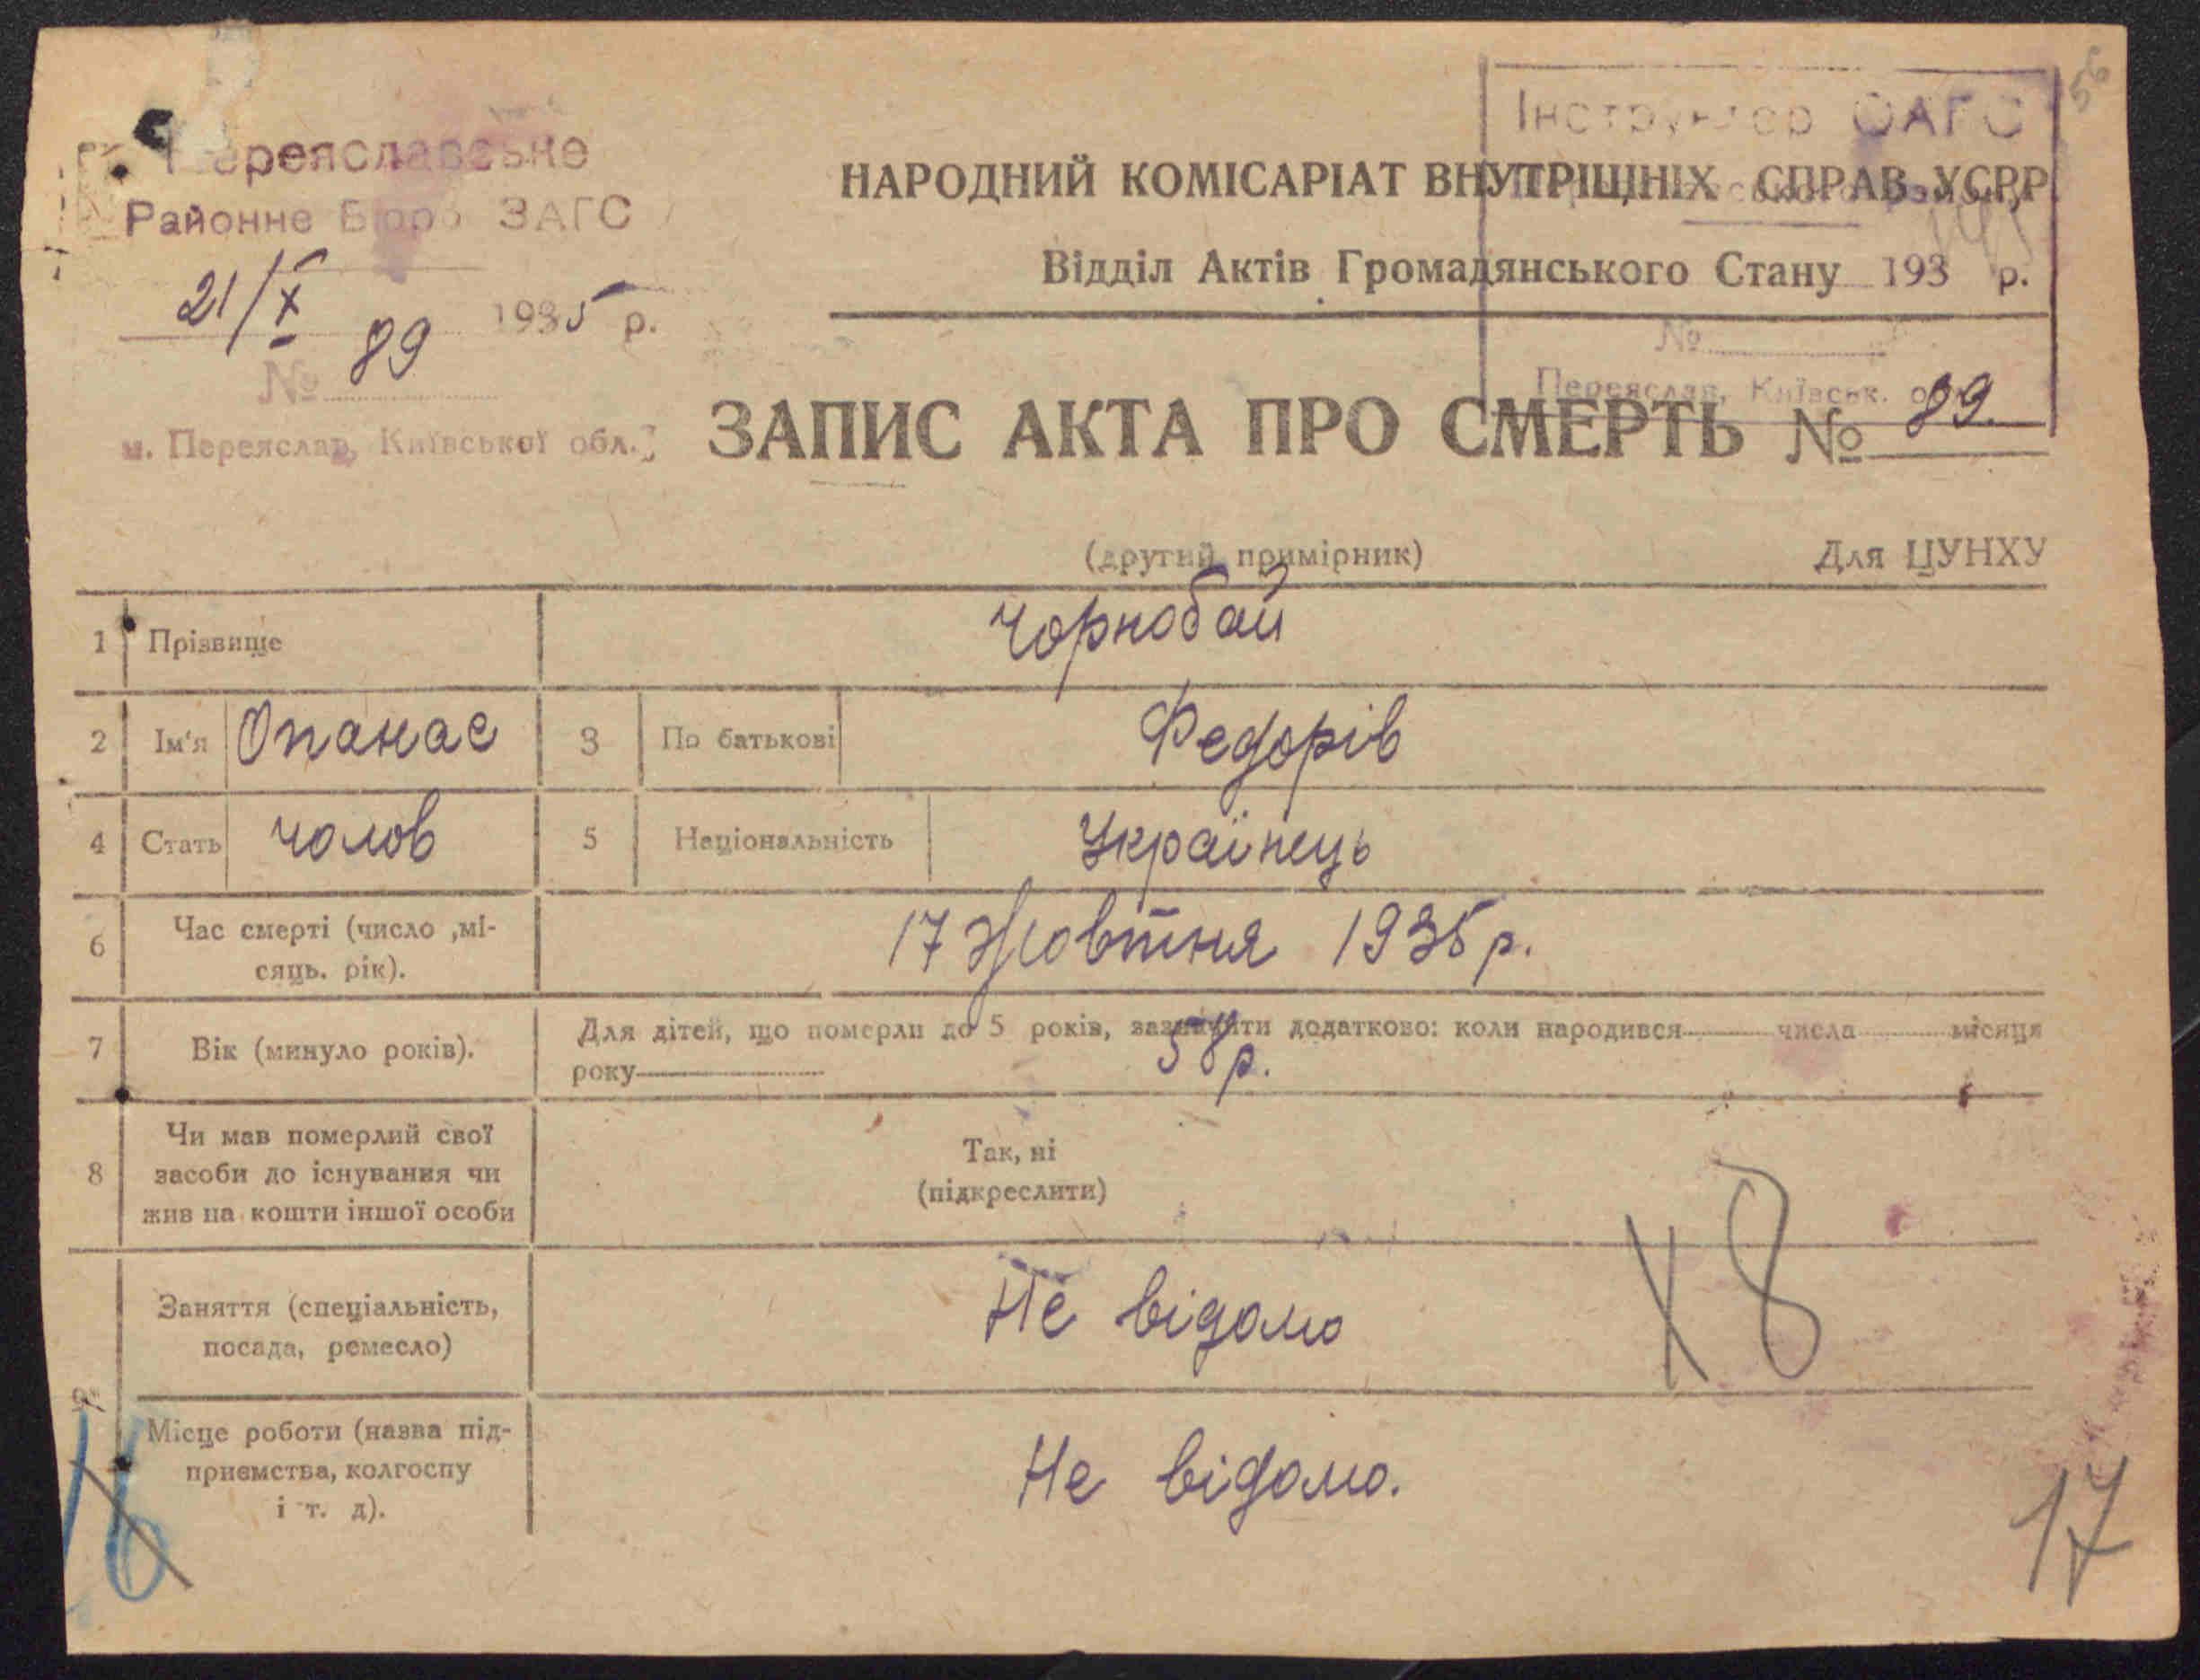 Переяславське
Районне Бюро ЗАГС
21/X 1935 р.
№ 89
м. Переяслав, Київської обл.
Інструктор ОАГС
НАРОДНИЙ КОМІСАРІАТ ВНУТРІШНІХ СПРАВ УСРР
Відділ Актів Громадянського Стану 193 р.
№
Переяслав, Київськ.
ЗАПИС АКТА ПРО СМЕРТЬ № 89.
56
(другий примірник) Для ЦУНХУ
1 Прізвище Чорнобай
2 Ім'я Опанас 3 По батькові Федорів
4 Стать чолов 5 Національність Українець
6 Час смерті (число ,мі-
сяць. рік).
17 Жовтня 1935 р.
7 Вік (минуло років).
Для дітей, що померли до 5 років, зазначити додатково: коли народився числа місяця
року
58 р.
8 Чи мав померлий свої
засоби до існування чи
жив на кошти іншої особи
Так, ні
(підкреслити)
Заняття (спеціальність,
посада, ремесло)
Не відомо
8
9
Місце роботи (назва під-
приємства, колгоспу
і т. д).
Не відомо.
16
17